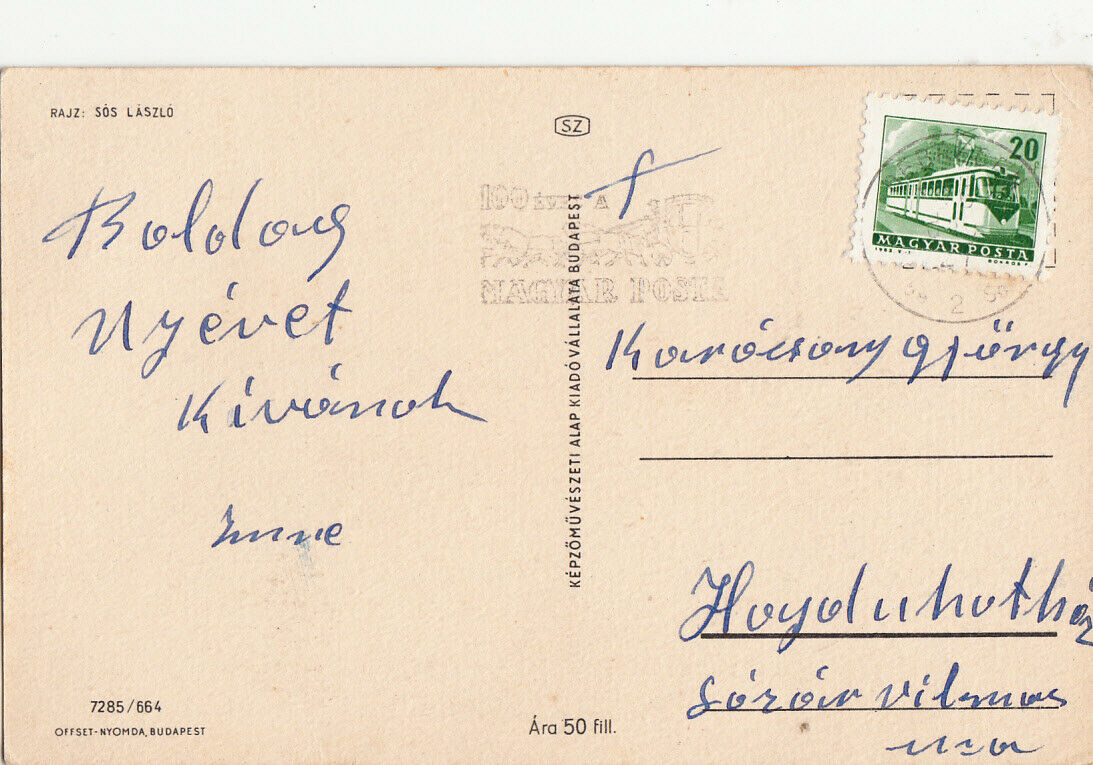 RAJZ: SÓS LÁSZLÓ
SZ
Boldog
Ujévet
Kívánok
Imre
7285/664
OFFSET-NYOMDA, BUDAPEST
KÉPZŐMŰVÉSZETI ALAP KIADÓVÁLLALATA BUDAPEST
Ára 50 fill.
100 ÉVES A
MAGYAR POSTA
20
MAGYAR POSTA
Karácsony György
Hajduhatház
Vilmos